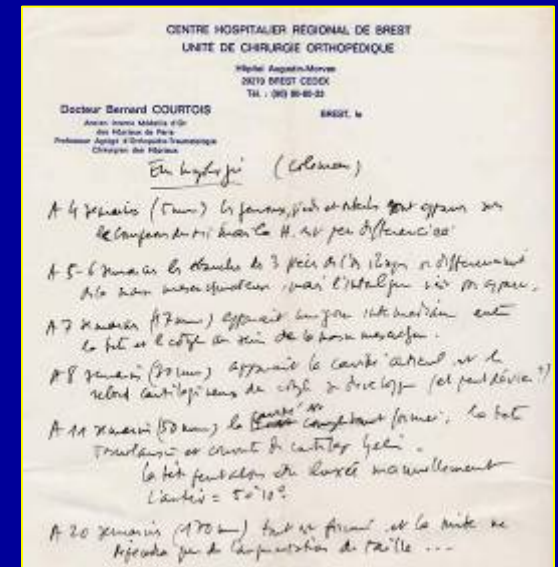 CENTRE HOSPITALIER RÉGIONAL DE BREST
UNITÉ DE CHIRURGIE ORTHOPÉDIQUE
Hôpital Augustin-Morvan
29279 BREST CEDEX
Tél. : (98)
Docteur Bernard COURTOIS
BREST, le
Ancien Interne Médaille d'Or
des Hôpitaux de Paris
Professeur Agrégé d'Orthopédie-Traumatologie
Chirurgien des Hôpitaux
Embryologie (Coleman)
A 4 semaines (5mm) les genoux, pieds et
est peu différenciée
A 5-6 semaines les ébauches des 3 pièces de l'os iliaque se différencient
de la masse mais
A 7 semaines (17mm) apparait une zone intermédiaire entre
la tête et le cotyle au sein de la masse
A 8 semaines (30mm) apparait la cavité et le
rebord cartilagineux du cotyle se développe (et peut dévier?)
A 11 semaines (50mm) la cavité est complètement formée, la tête
et couverte de cartilage
la tête peut alors être luxée manuellement
L'antév = 5 à 10°
A 20 semaines (170mm) tout est formé et la suite ne
que de l'augmentation de taille ...